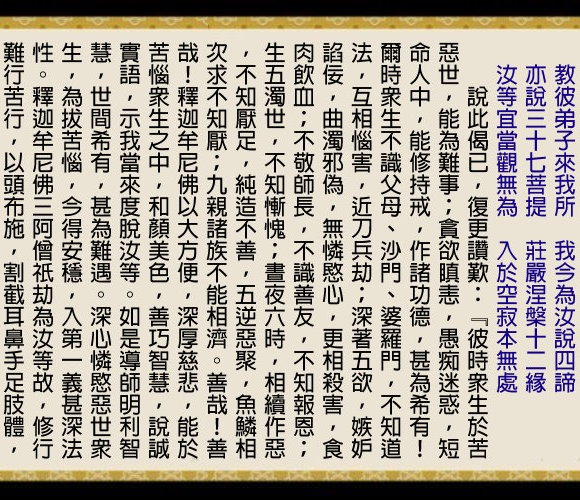 教彼弟子來我所　我今為汝說四諦
亦說三十七菩提　莊嚴涅槃十二緣
汝等宜當觀無為　入於空寂本無處
說此偈已，復更讚歎：『彼時眾生於苦
惡世，能為難事；貪欲瞋恚，愚痴迷惑，短
命人中，能修持戒，作諸功德，甚為希有！
爾時眾生不識父母、沙門、婆羅門，不知道
法，互相惱害，近刀兵劫；深著五欲，嫉妒
諂佞，曲濁邪偽，無憐愍心，更相殺害，食
肉飲血；不敬師長，不識善友，不知報恩；
生五濁世，不知慚愧；晝夜六時，相續作惡
，不知厭足，純造不善，五逆惡聚，魚鱗相
次求不知厭；九親諸族不能相濟。善哉！善
哉！釋迦牟尼佛以大方便，深厚慈悲，能於
苦惱眾生之中，和顏美色，善巧智慧，說誠
實語，示我當來度脫汝等。如是導師明利智
慧，世間希有，甚為難遇。深心憐愍惡世眾
生，為拔苦惱，今得安穩，入第一義甚深法
性。釋迦牟尼佛三阿僧祇劫為汝等故，修行
難行苦行，以頭布施，割截耳鼻手足肢體，